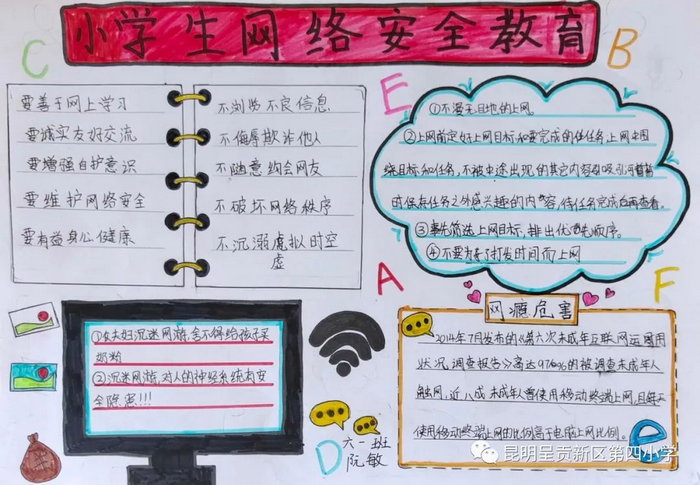 小学生网络安全教育
C
B
要善于网上学习
要诚实友好交流
要增强自护意识
要维护网络安全
要有益身心健康
不浏览不良信息
不侮辱欺诈他人
不随意约会网友
不破坏网络秩序
不沉溺虚拟时空
虚
E
①不漫无目地的上网
②上网前定好上网目标和要完成的任务上网中围
绕目标和任务，不被中途出现的其它内容吸引可暂
时保存任务之外感兴趣的内容，待任务完成后再查看。
③事先筛选上网目标，排出优先顺序。
④不要为了打发时间而上网
A
F
①夫妇沉迷网游，舍不得给孩子买
奶粉
②沉迷网游，对人的神经系统有安
全隐患!!!
网瘾危害
2014年7月发布的《第六次未成年互联网运用
状况，调查报告》高达97%的被调查未成年人
触网，近八成未成年曾使用移动终端上网，且每天
使用移动终端上网的比例高于电脑上网比例。
D
六一班
阮敏
e
昆明呈贡新区第四小学